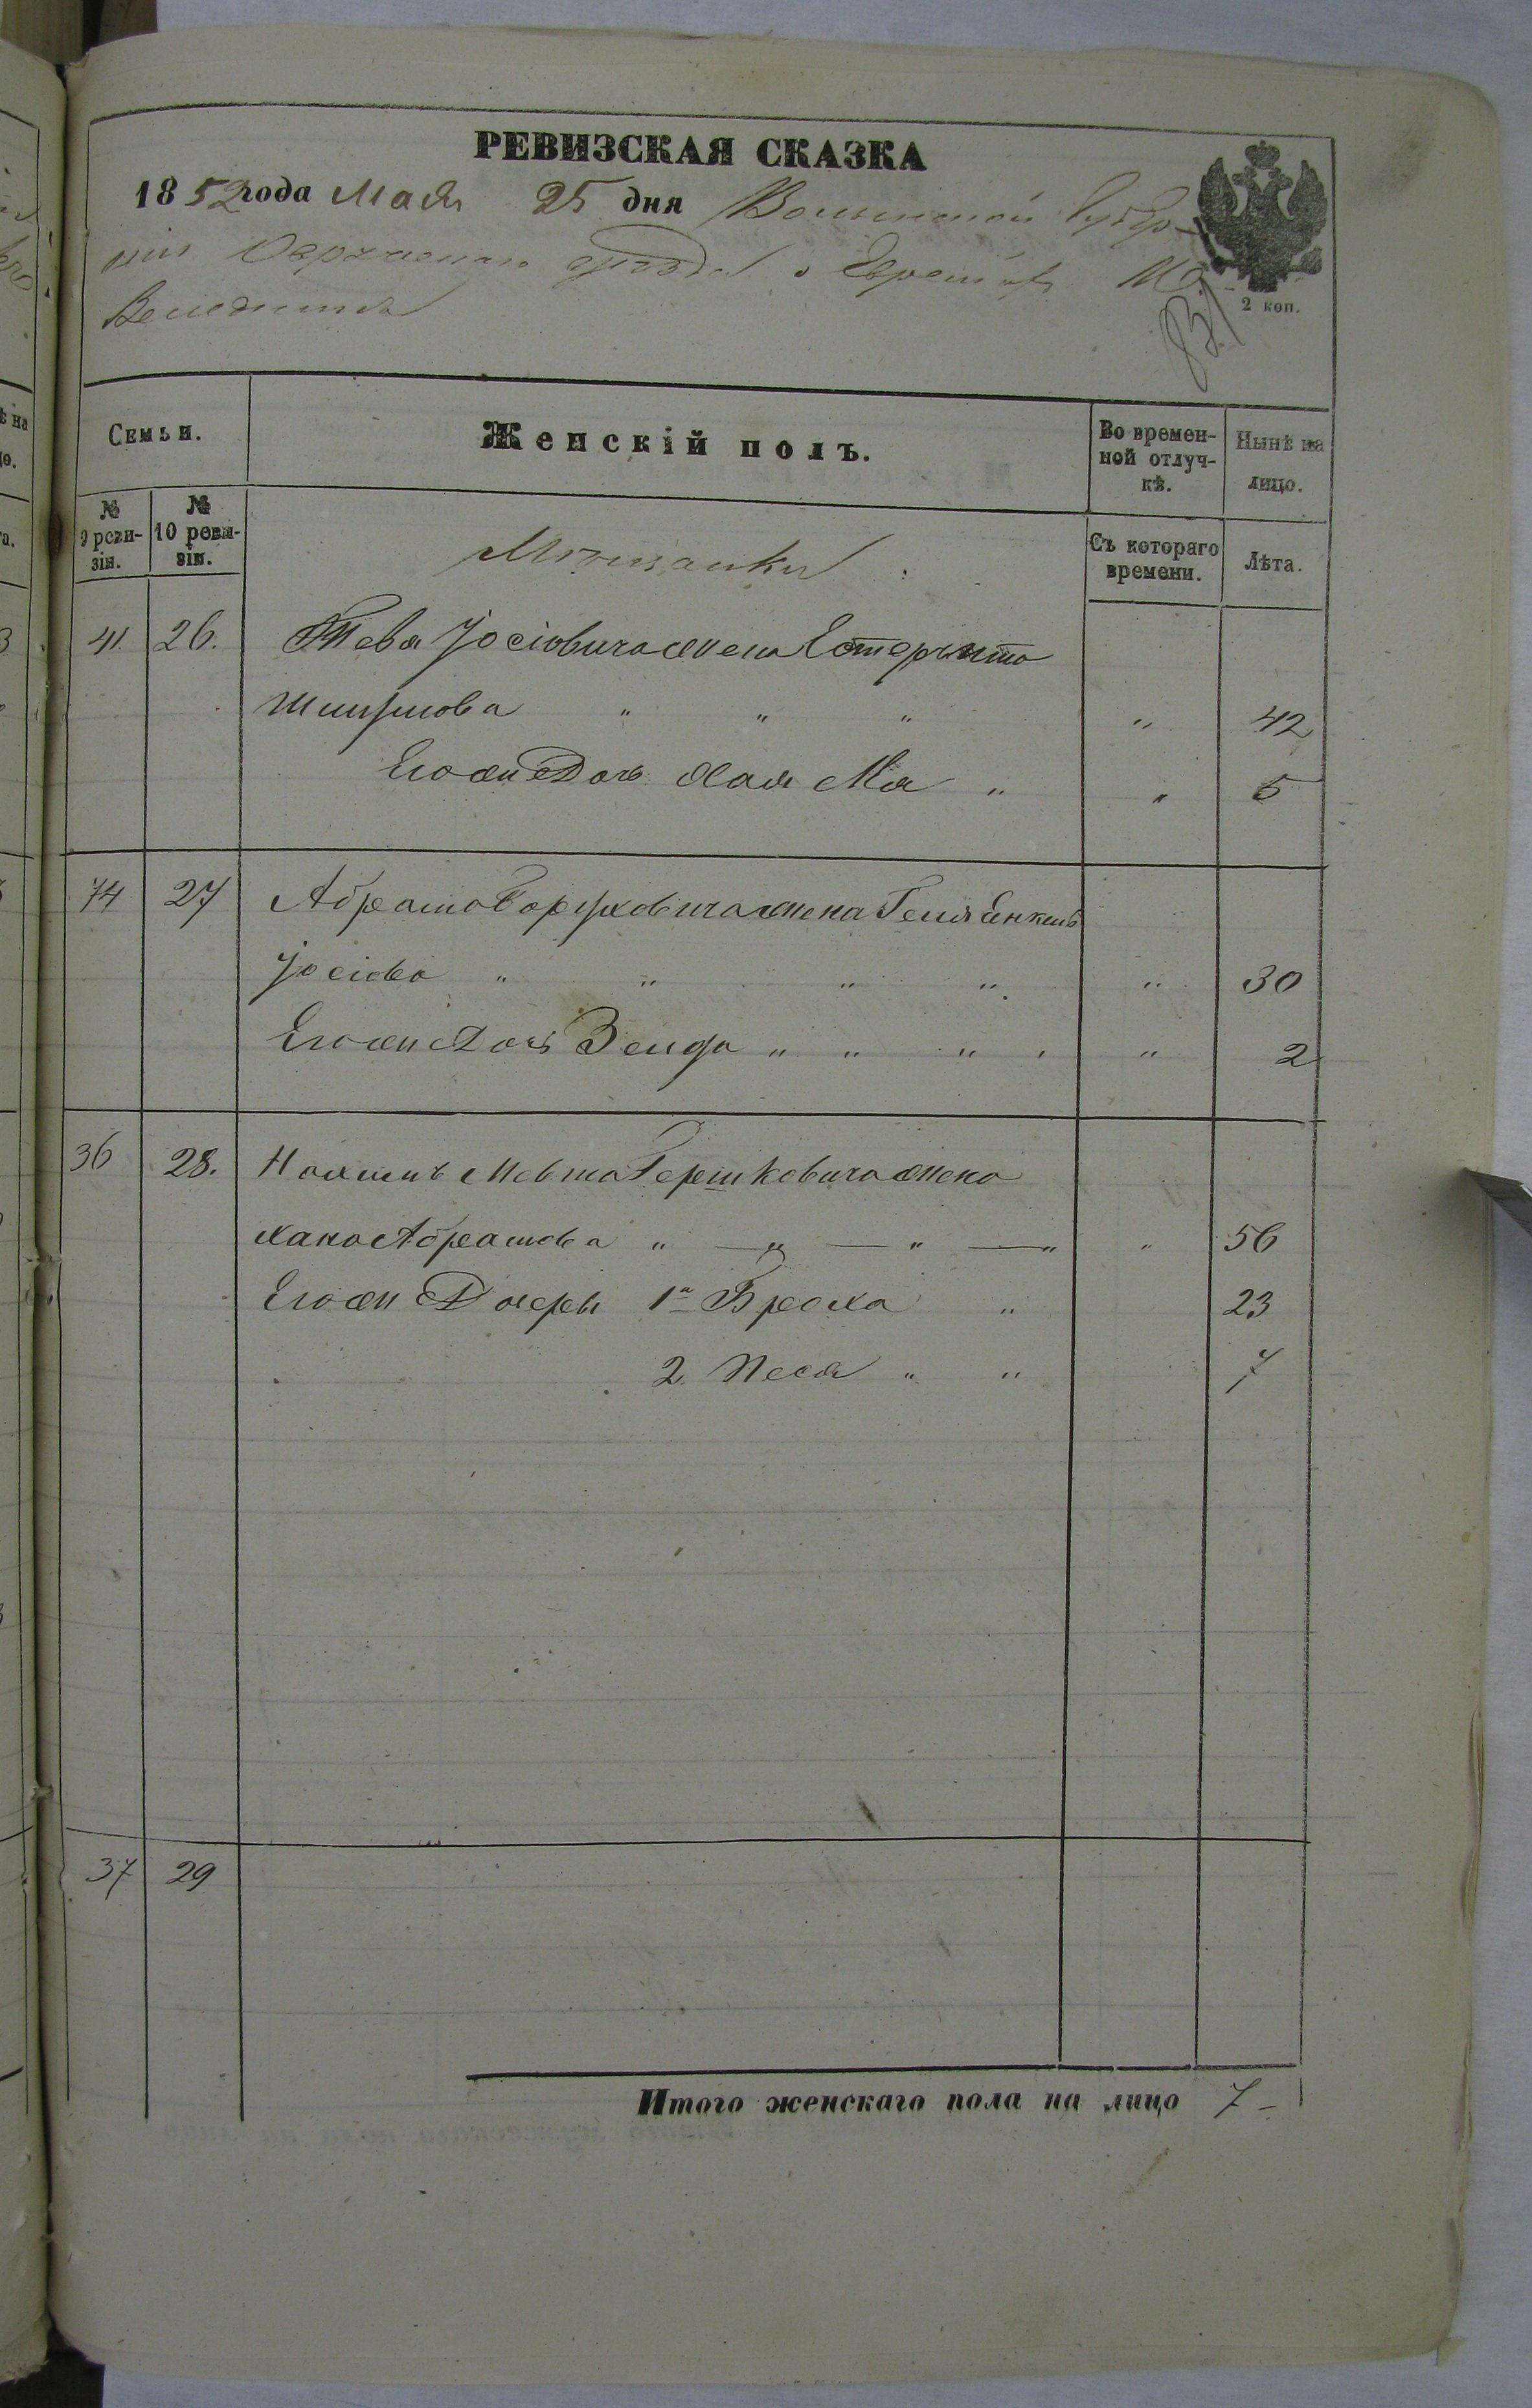 РЕВИЗСКАЯ СКАЗКА
1852 года Мая 25 дня Волынской Губер-
ніи Овручскаго уѣзда о Евреяхъ М.
Веледники
2 коп.
Семьи.
Женскій полъ.
Во времен-
ной отлуч-
кѣ.
Нынѣ на
лицо.
№
9 реви-
зіи.
№
10 реви-
зіи.
Мѣщанки
Съ котораго
времени.
Лѣта.
41. 26. Іосіовича жена Естеръ
" " " " 42
Егожъ Дочь Хая " " 5
74 27 Абрама Боруховича жена Геня Енкель
Іосіова " " " " " 30
Егожъ Дочь " " " " 2
36 28. Гершковича жена
Хана Абрамова " " " " " 56
Егожъ Дочери 1я Брейха " 23
2. Песя " " 7
37 29
Итого женскаго пола на лицо 7 -